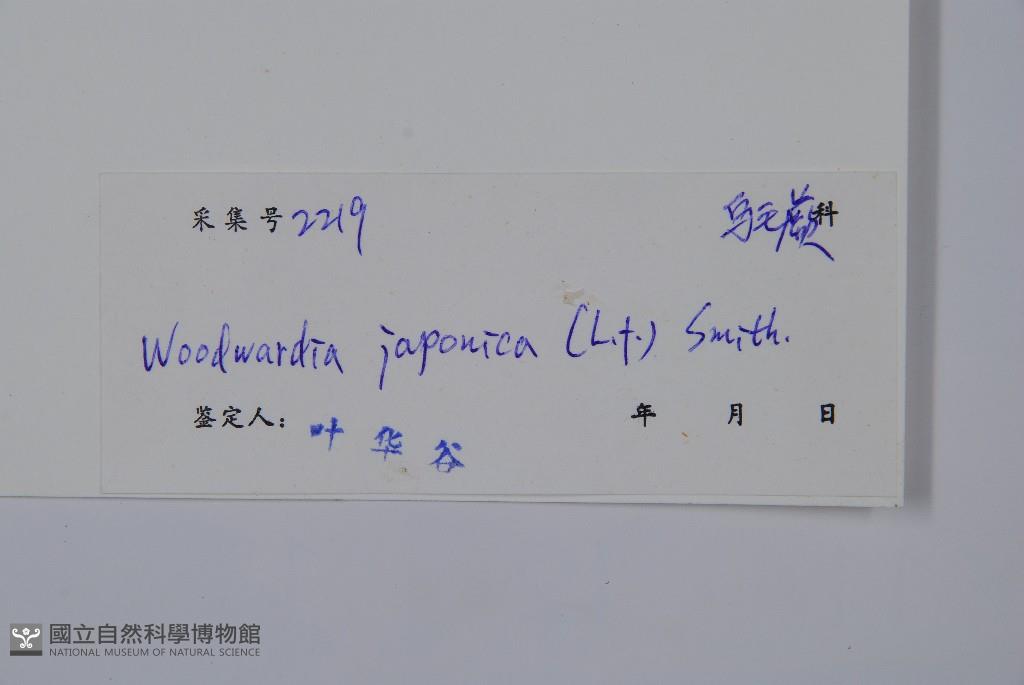 采集号 2219 乌毛蕨科
Woodwardia japonica (L.f.) Smith.
鉴定人: 叶华谷 年 月 日
國立自然科學博物館
NATIONAL MUSEUM OF NATURAL SCIENCE